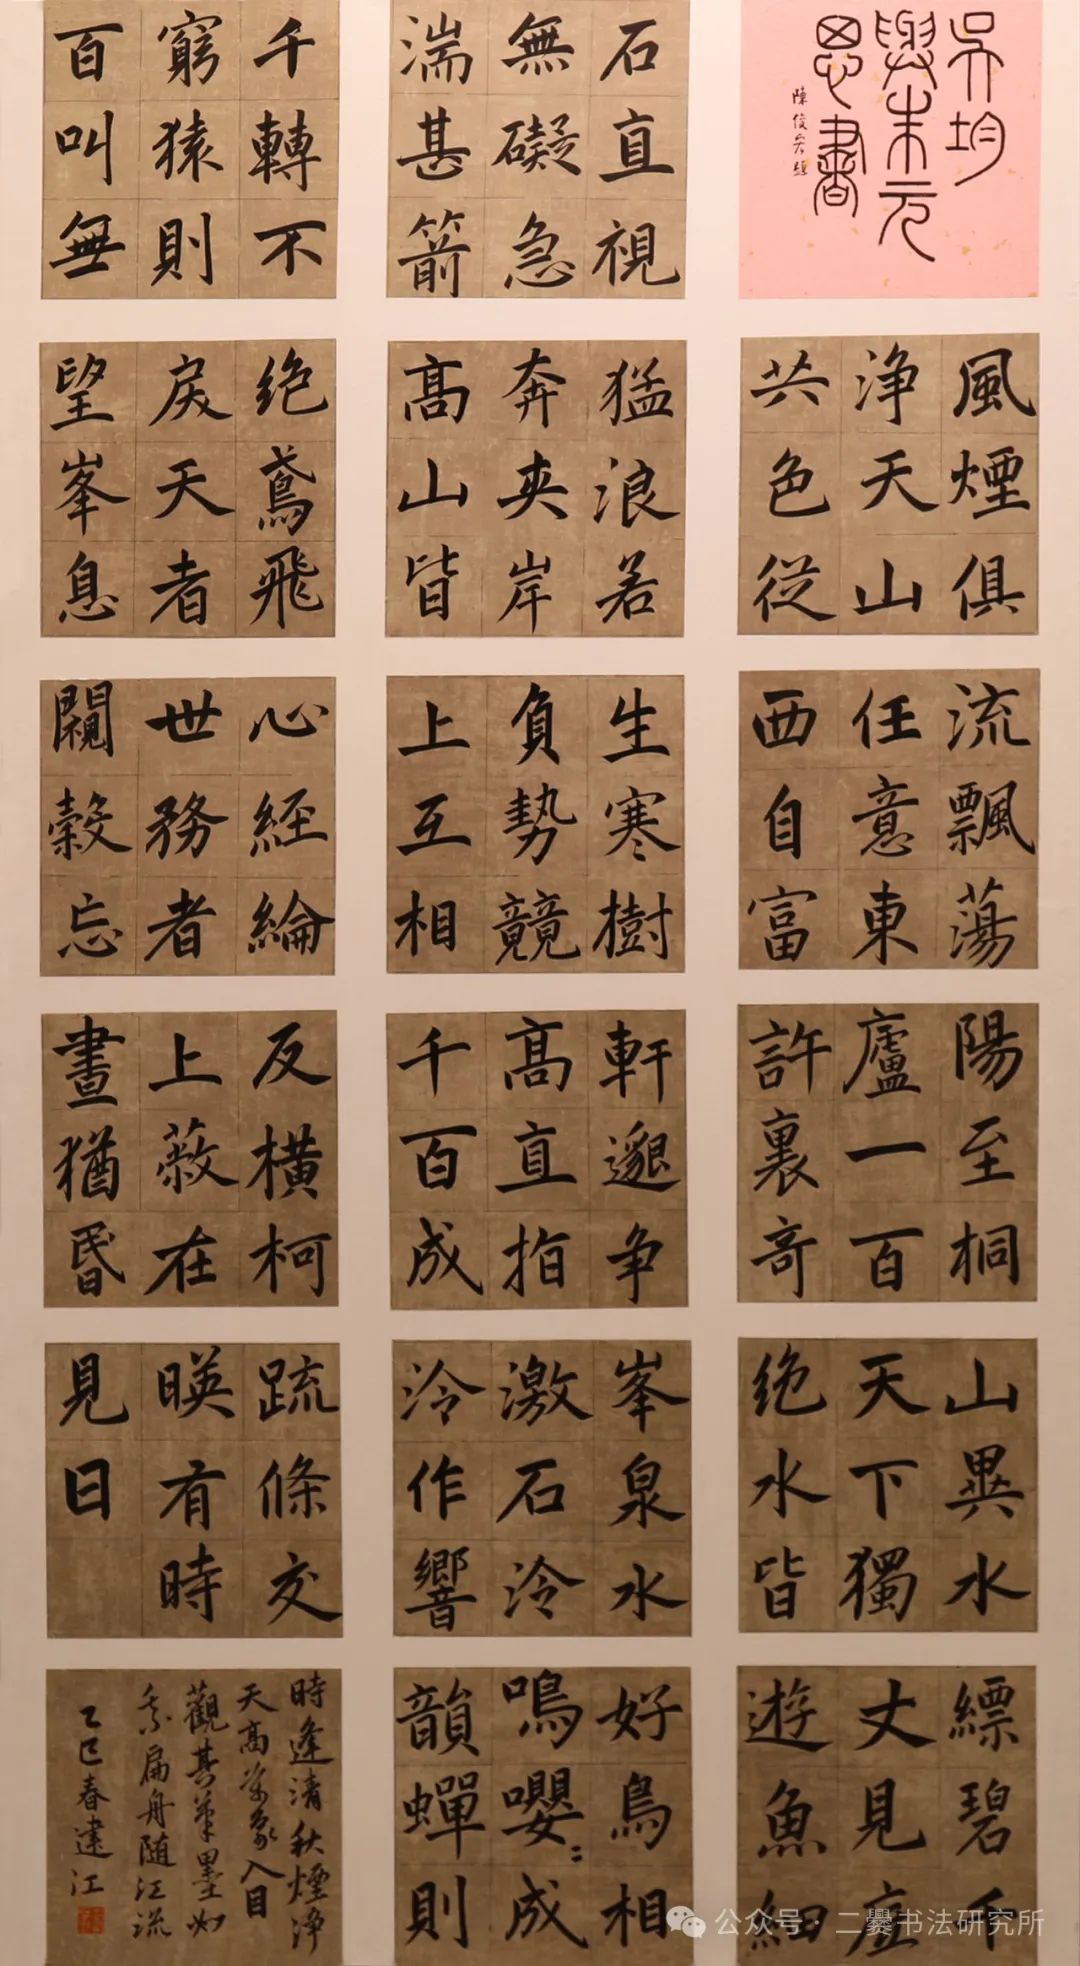 吳均
與朱元
思書
陳俊題
風煙俱
净天山
共色從
流飄蕩
任意東
西自富
陽至桐
廬一百
許裏奇
山異水
天下獨
绝水皆
縹碧千
丈見底
遊魚細
石直視
無礙急
湍甚箭
猛浪若
奔夾岸
髙山皆
生寒樹
負勢競
上互相
軒邈争
髙直指
千百成
峯泉水
激石泠
泠作響
好鳥相
鳴嚶〻成
韻蟬則
千轉不
窮猿則
百叫無
绝鳶飛
戾天者
望峯息
心經綸
世務者
闚榖忘
反横柯
上蔽在
晝猶昏
疏條交
暎有時
見日
時逢清秋煙淨
天高萬象入目
觀其筆墨如
乘扁舟随江流
乙巳春建江
公众号·二爨书法研究所